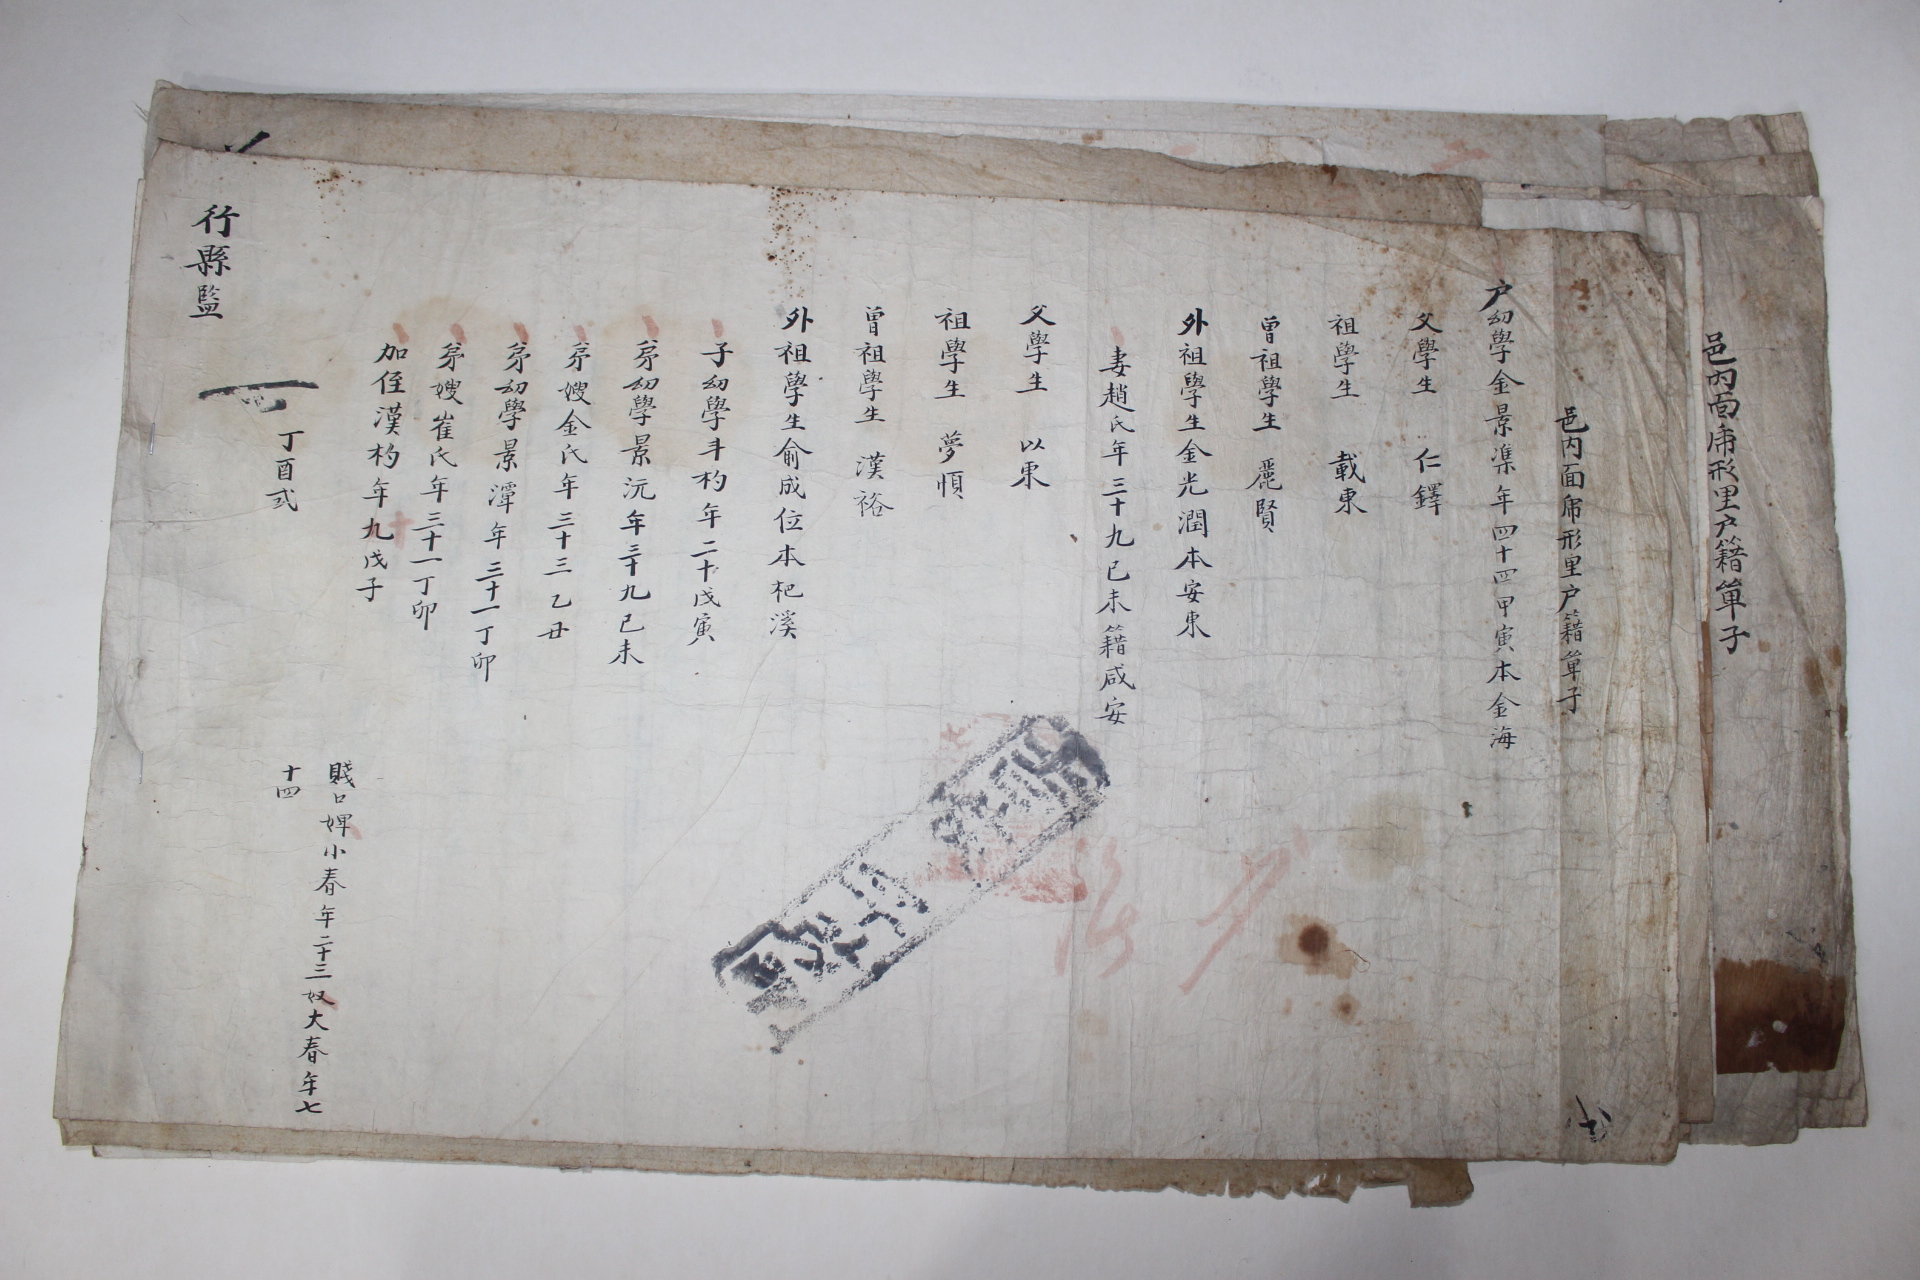 邑內面席形里户籍單子
邑內面席形里户籍單子
户幼學金景準年四十四甲寅本金海
父學生仁鐸
祖學生載東
曾祖學生麗賢
外祖學生金光潤本安東
妻趙氏年三十九己未籍咸安
父學生以東
祖學生夢順
曾祖學生漢裕
外祖學生俞成位本杞溪
子幼學斗杓年二十戊寅
弟幼學景沅年三十九己未
弟嫂金氏年三十三乙丑
弟幼學景潭年三十一丁卯
弟嫂崔氏年三十一丁卯
加侄漢杓年九戊子
賤口婢小春年二十三奴大春年七
十四
丁酉式
行縣監